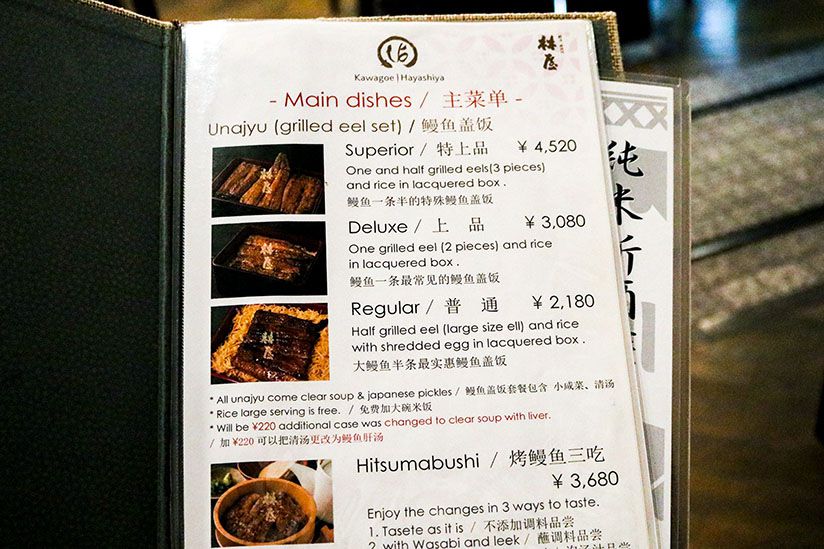 Kawagoe | Hayashiya
林屋
- Main dishes / 主菜单 -
Unajyu (grilled eel set) / 鳗鱼盖饭
Superior / 特上品 ¥ 4,520
One and half grilled eels(3 pieces)
and rice in lacquered box .
鳗鱼一条半的特殊鳗鱼盖饭
Deluxe / 上 品 ¥ 3,080
One grilled eel (2 pieces) and rice
in lacquered box .
鳗鱼一条最常见的鳗鱼盖饭
Regular / 普 通 ¥ 2,180
Half grilled eel (large size ell) and rice
with shredded egg in lacquered box .
大鳗鱼半条最实惠鳗鱼盖饭
* All unajyu come clear soup & japanese pickles / 鳗鱼盖饭套餐包含 小咸菜、清汤
* Rice large serving is free. / 免费加大碗米饭
* Will be ¥220 additional case was changed to clear soup with liver.
/ 加 ¥220 可以把清汤更改为鳗鱼肝汤
Hitsumabushi / 烤鳗鱼三吃
¥ 3,680
Enjoy the changes in 3 ways to taste.
1. Tasete as it is / 不添加调料品尝
2. with Wasabi and leek / 蘸调料品尝
純米